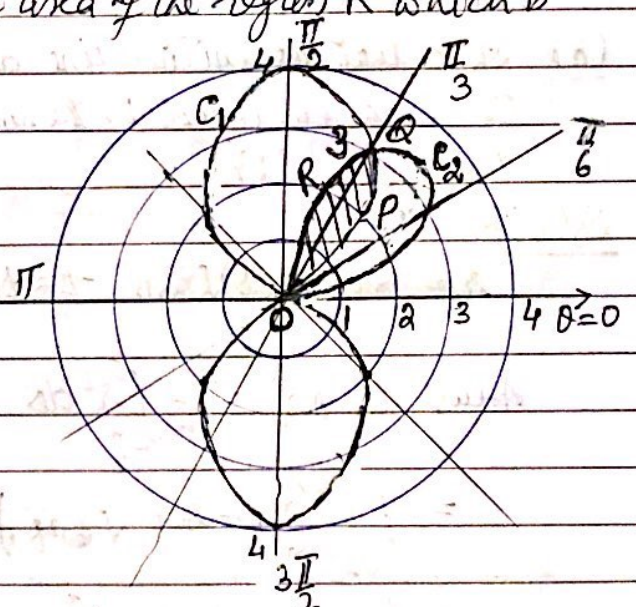 area of the region R which is
4 π/2
π/3
C₁
3 Q
C₂
π/6
R
P
π
O 1 2 3 4 θ=0
4
3π/2